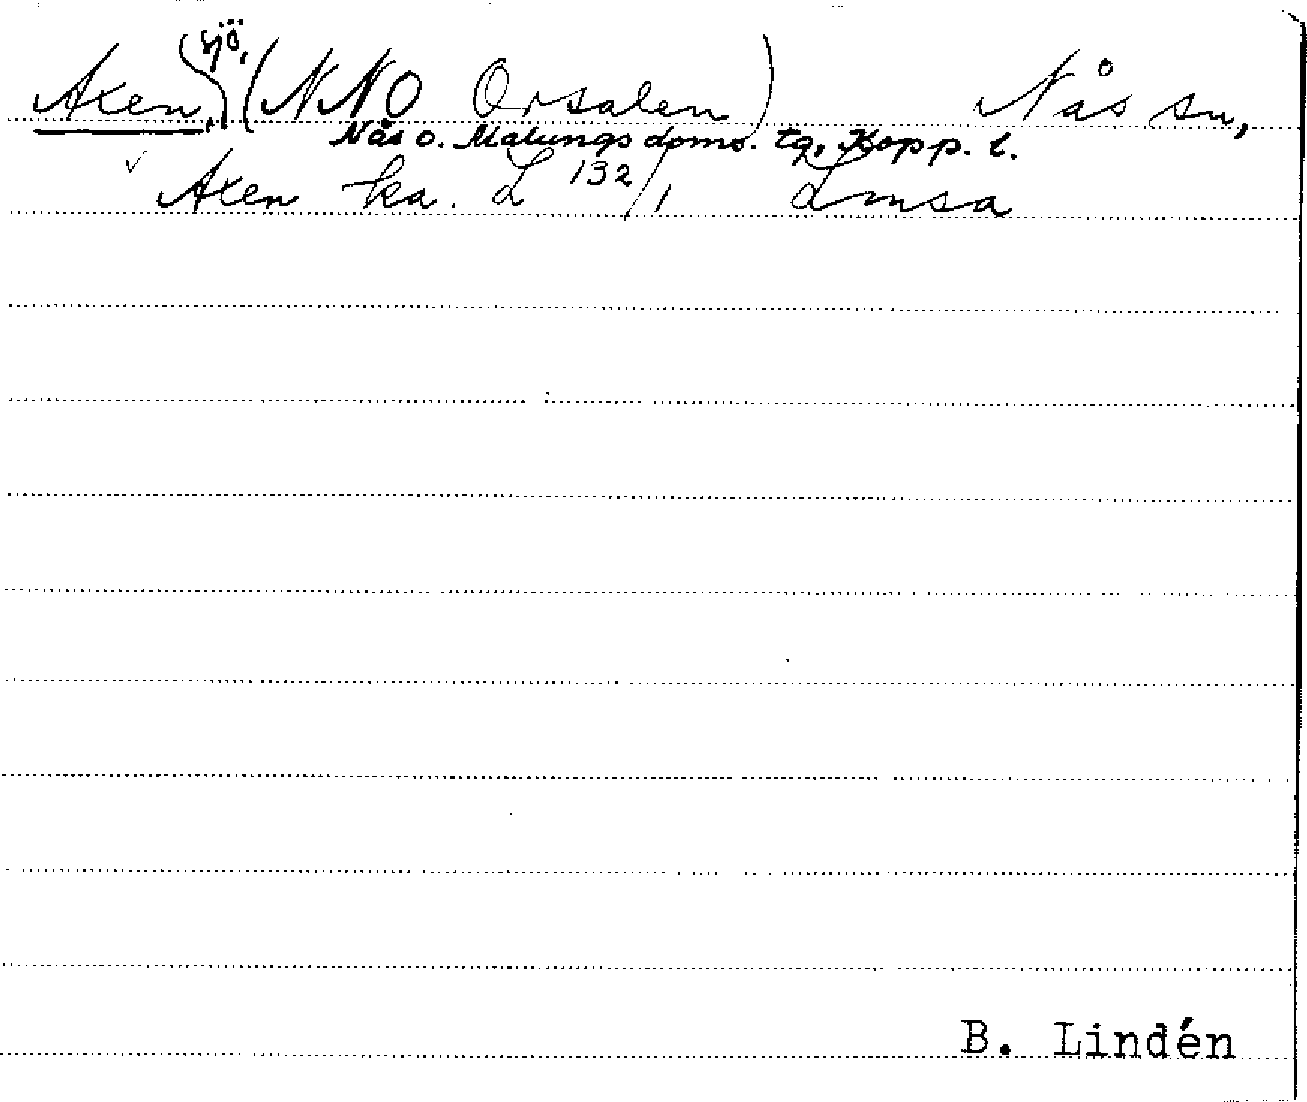 Axen, sjö, (NNO Orsalen) Nås sn,
Nås o. Malungs doms. tg, Kopp. l.
Axen ka. L 132/1 Lmsa
B. Lindén